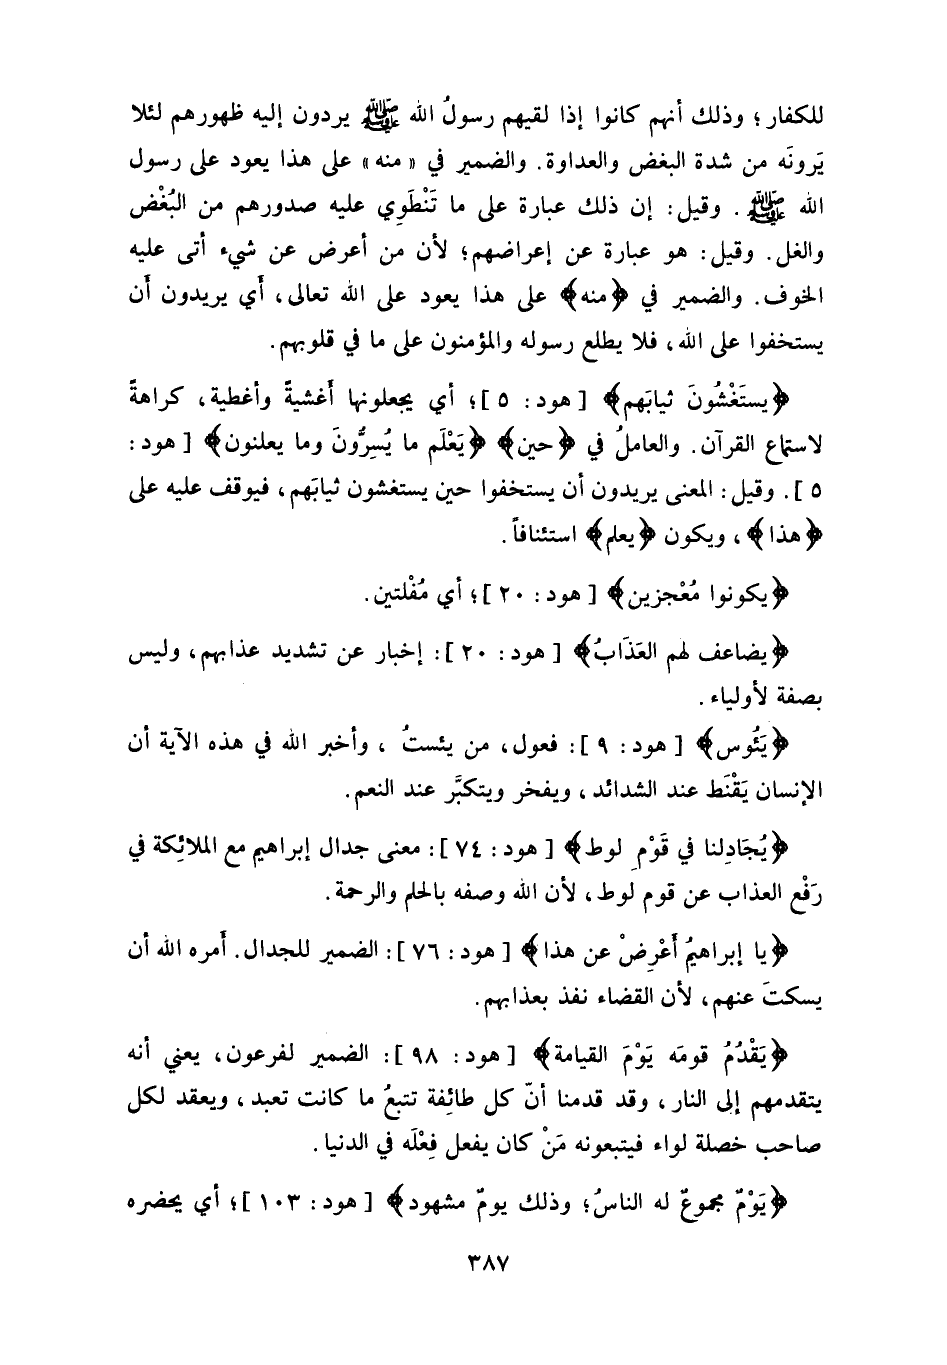 للكفار؛ وذلك أنهم كانوا إذا لقيهم رسولُ الله ﷺ يردون إليه ظهورهم لئلا
يَرونَه من شدة البغض والعداوة. والضمير في «منه» على هذا يعود على رسول
الله ﷺ. وقيل: إن ذلك عبارة على ما تَنْطَوِي عليه صدورهم من البُغْض
والغل. وقيل: هو عبارة عن إعراضهم؛ لأن من أعرض عن شيء أتى عليه
الخوف. والضمير في ﴿منه﴾ على هذا يعود على الله تعالى، أَي يريدون أَن
يستخفوا على الله، فلا يطلع رسوله والمؤمنون على ما في قلوبهم.
﴿يستَغْشُونَ ثيابَهم﴾ [هود: ٥]؛ أي يجعلونها أَغشيةً وأغطية، كراهةً
لاستماع القرآن. والعاملُ في ﴿حين﴾ ﴿يَعْلَم ما يُسِرُّونَ وما يعلنون﴾ [هود:
٥]. وقيل: المعنى يريدون أن يستخفوا حين يستغشون ثيابَهم، فيوقف عليه على
﴿هذا﴾، ويكون ﴿يعلم﴾ استئنافاً.
﴿يكونوا مُعْجزين﴾ [هود: ٢٠]؛ أي مُفْلتين.
﴿يضاعف لهم العَذَابُ﴾ [هود: ٢٠]: إخبار عن تشديد عذابهم، وليس
بصفة لأولياء.
﴿يَئُوس﴾ [هود: ٩]: فعول، من يئستُ، وأخبر الله في هذه الآية أن
الإنسان يَقْنَط عند الشدائد، ويفخر ويتكبَّر عند النعم.
﴿يُجَادِلنا في قَوْمِ لوط﴾ [هود: ٧٤]: معنى جدال إبراهيم مع الملائِكة في
رَفْع العذاب عن قوم لوط، لأن الله وصفه بالحلم والرحمة.
﴿يا إبراهيمُ أَعْرِضْ عن هذا﴾ [هود: ٧٦]: الضمير للجدال. أَمره الله أن
يسكتَ عنهم، لأن القضاء نفذ بعذابهم.
﴿يَقْدُمُ قومَه يَوْمَ القيامة﴾ [هود: ٩٨]: الضمير لفرعون، يعني أنه
يتقدمهم إلى النار، وقد قدمنا أنّ كل طائِفة تتبعُ ما كانت تعبد، ويعقد لكل
صاحب خصلة لواء فيتبعونه مَنْ كان يفعل فِعْلَه في الدنيا.
﴿يَوْمٌ مجموعٌ له الناسُ؛ وذلك يومٌ مشهود﴾ [هود: ١٠٣]؛ أي يحضره
٣٨٧